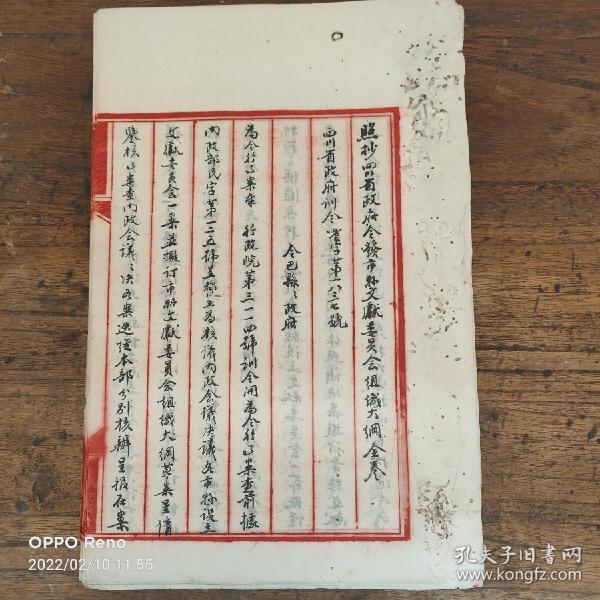 照抄四川省政府令發市縣文獻委員会组織大綱全卷
四川省政府訓令 字第一八三七號
令巴縣縣政府
為令行事案奉行政院第三一一四號訓令開為令行事案查前據
内政部民字第一二五號呈稱為核議内政会議決議各市縣設立
文獻委員会一案並擬訂市縣文獻委員会组織大綱草案呈請
鑒核事案查内政会議決各案迭经本部分别核辦呈报在案
OPPO Reno
2022/02/10 11:55
孔夫子旧書网
www.kongfz.com